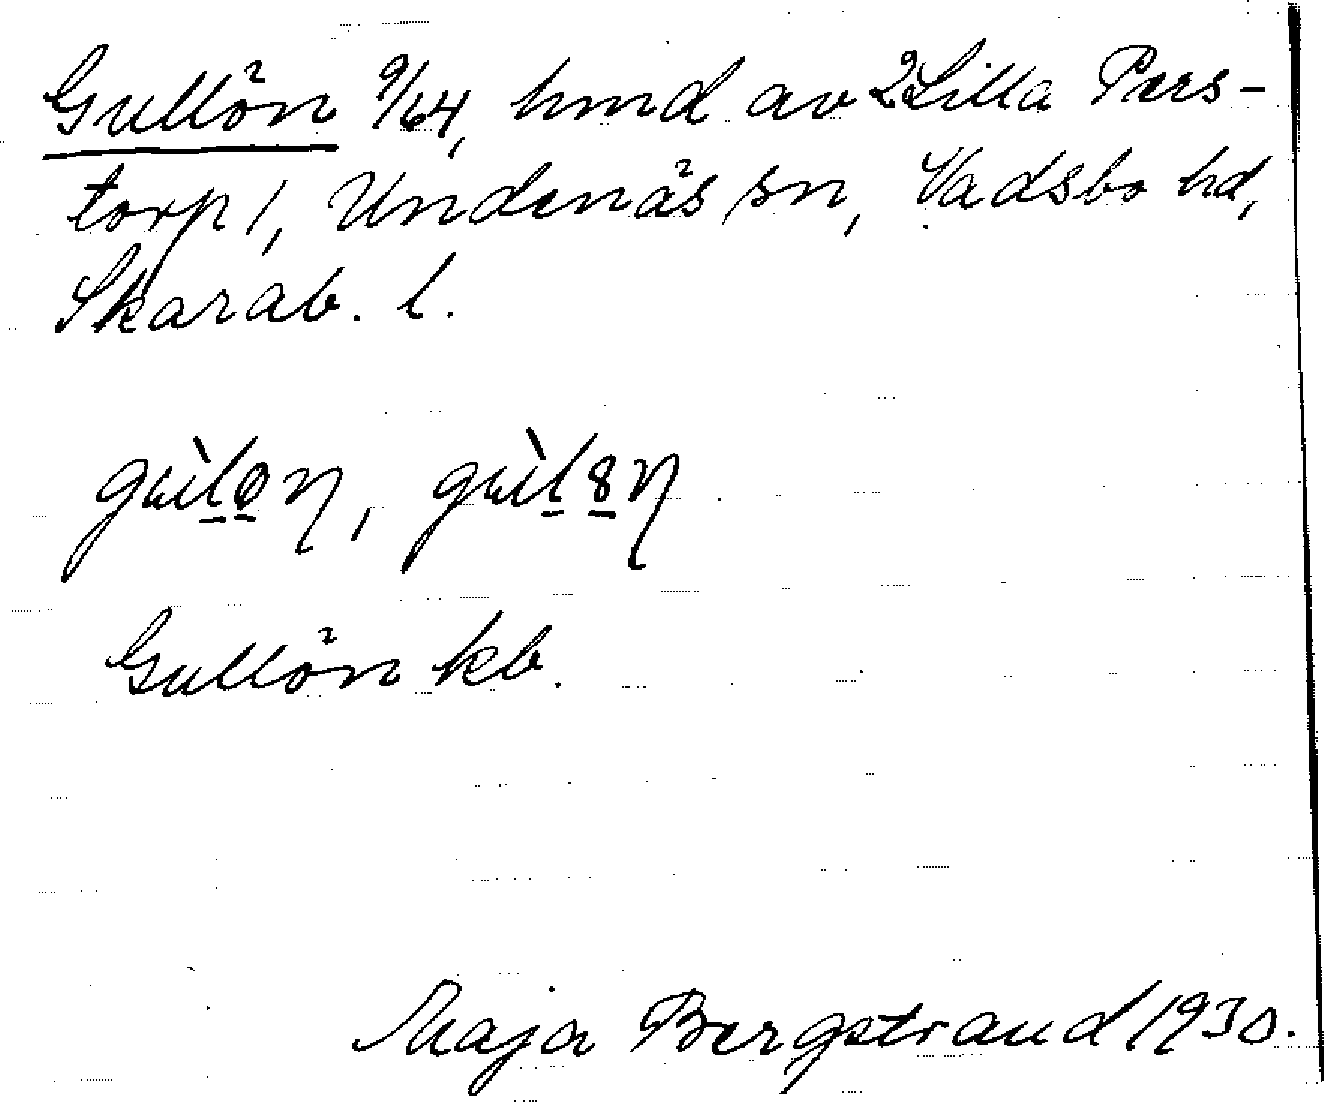 Gullön 9/64, hmd av 2 Lilla Pers-
torp 1, Undenäs sn, Vadsbo hd,
Skarab. l.
Gullön kb.
Maja Bergstrand 1930.